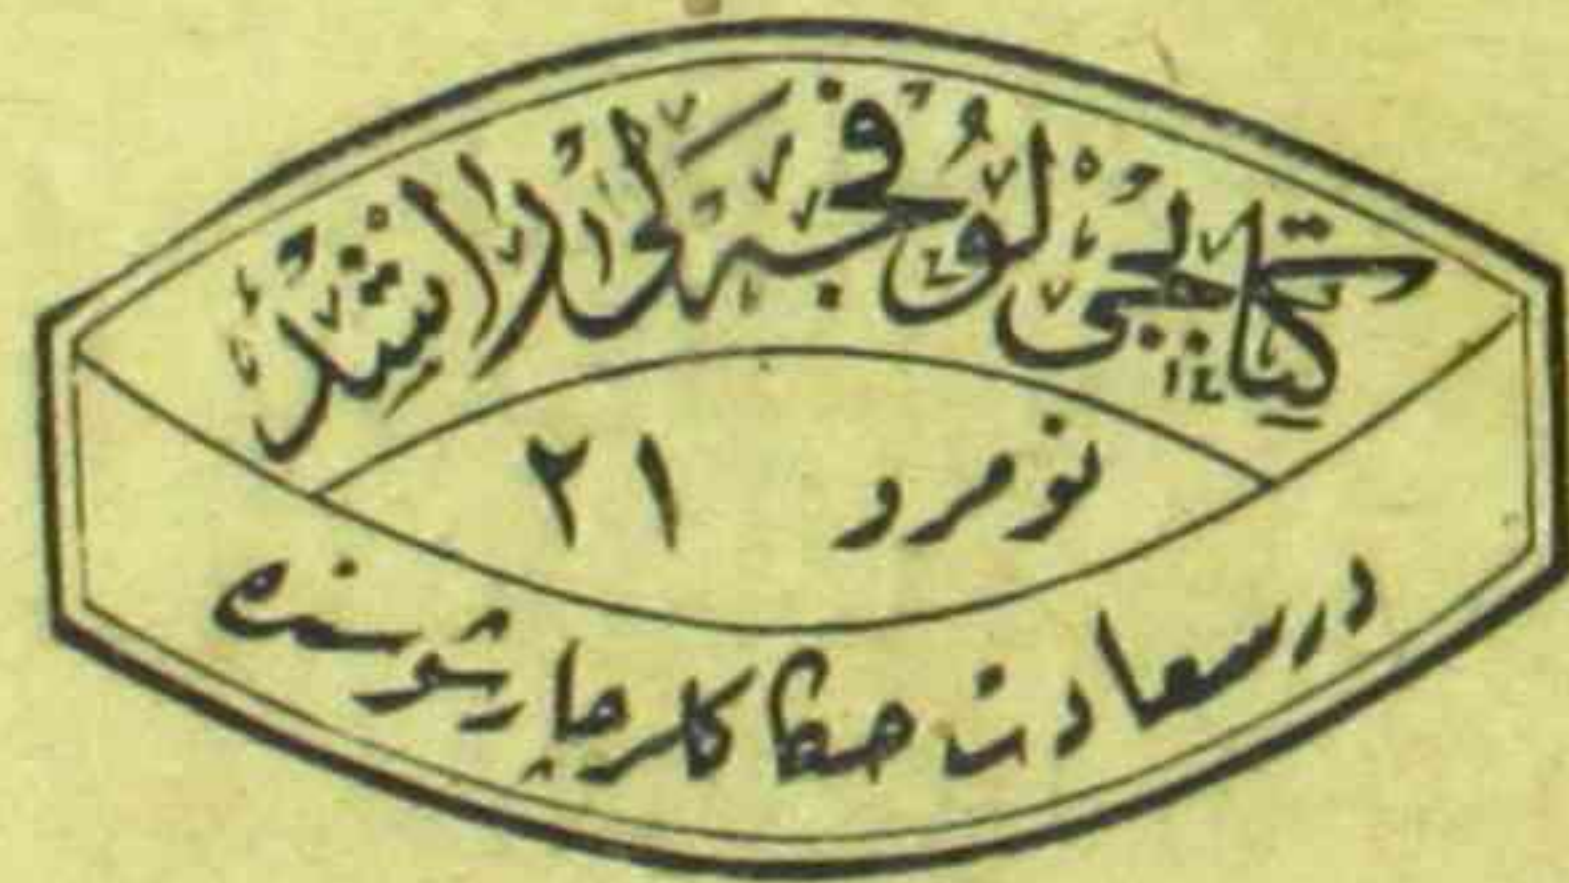 كتابجى لوفجه لى راشد
١٤
نومرو ٢١
درسعادت حكاكلر چارشوسنده